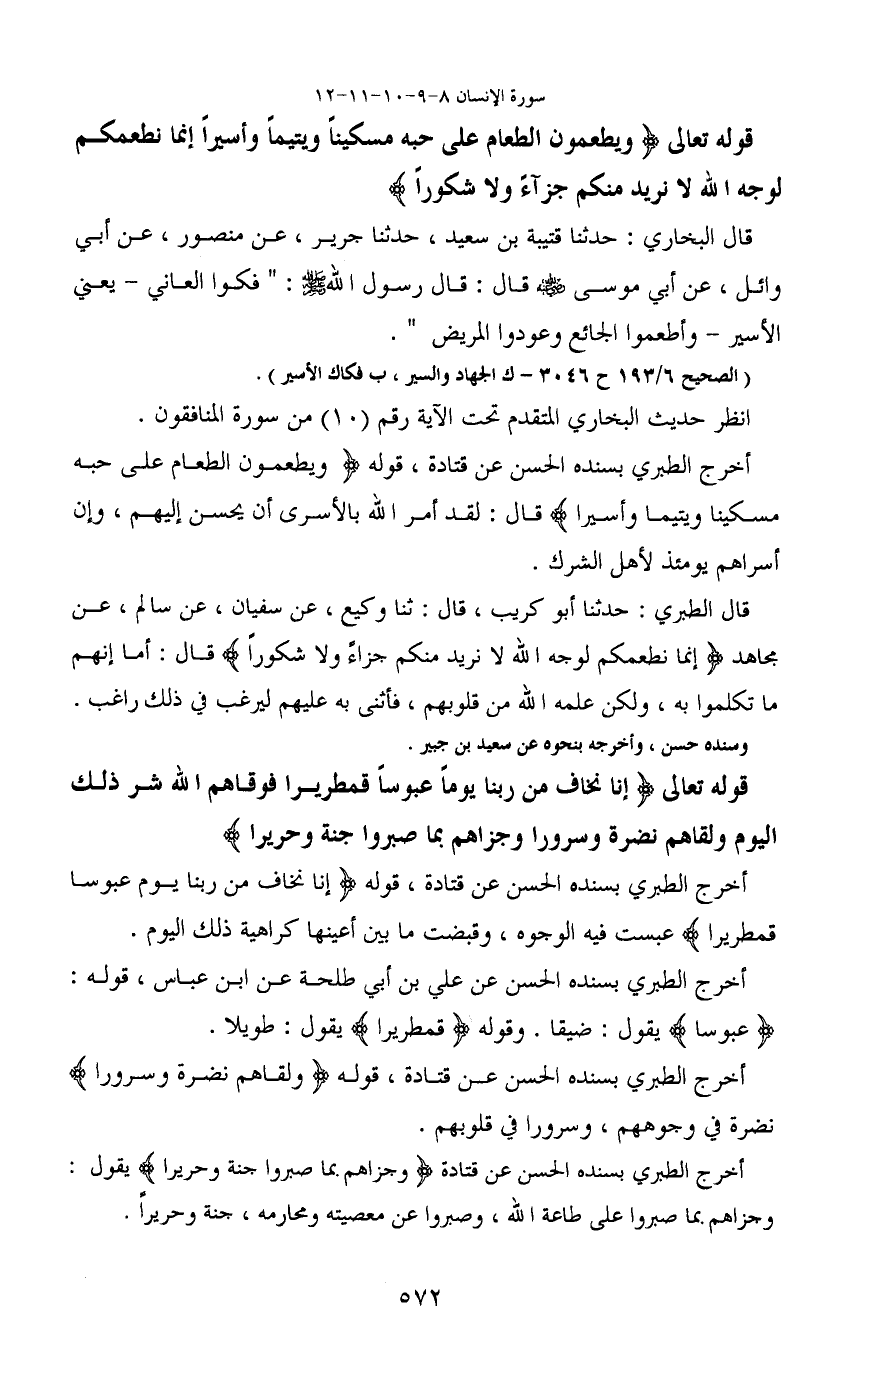 سورة الإنسان ٨-٩-١٠-١١-١٢
قوله تعالى ﴿ ويطعمون الطعام على حبه مسكيناً ويتيماً وأسيراً إنما نطعمكم
لوجه الله لا نريد منكم جزآءً ولا شكوراً ﴾
قال البخاري : حدثنا قتيبة بن سعيد ، حدثنا جرير ، عن منصور ، عن أبي
وائل ، عن أبي موسى ﷺ قال : قال رسول الله ﷺ : " فكوا العاني - يعني
الأسير - وأطعموا الجائع وعودوا المريض " .
( الصحيح ١٩٣/٦ ح ٣٠٤٦ - ك الجهاد والسير ، ب فكاك الأسير ) .
انظر حديث البخاري المتقدم تحت الآية رقم (١٠) من سورة المنافقون .
أخرج الطبري بسنده الحسن عن قتادة ، قوله ﴿ ويطعمون الطعام على حبه
مسكينا ويتيما وأسيرا ﴾ قال : لقد أمر الله بالأسرى أن يحسن إليهم ، وإن
أسراهم يومئذ لأهل الشرك .
قال الطبري : حدثنا أبو كريب ، قال : ثنا وكيع ، عن سفيان ، عن سالم ، عن
مجاهد ﴿ إنما نطعمكم لوجه الله لا نريد منكم جزاءً ولا شكوراً ﴾ قال : أما إنهم
ما تكلموا به ، ولكن علمه الله من قلوبهم ، فأثنى به عليهم ليرغب في ذلك راغب .
وسنده حسن ، وأخرجه بنحوه عن سعيد بن جبير .
قوله تعالى ﴿ إنا نخاف من ربنا يوماً عبوساً قمطريرا فوقاهم الله شر ذلك
اليوم ولقاهم نضرة وسرورا وجزاهم بما صبروا جنة وحريرا ﴾
أخرج الطبري بسنده الحسن عن قتادة ، قوله ﴿ إنا نخاف من ربنا يوم عبوسا
قمطريرا ﴾ عبست فيه الوجوه ، وقبضت ما بين أعينها كراهية ذلك اليوم .
أخرج الطبري بسنده الحسن عن علي بن أبي طلحة عن ابن عباس ، قوله :
﴿ عبوسا ﴾ يقول : ضيقا . وقوله ﴿ قمطريرا ﴾ يقول : طويلا .
أخرج الطبري بسنده الحسن عن قتادة ، قوله ﴿ ولقاهم نضرة وسرورا ﴾
نضرة في وجوههم ، وسرورا في قلوبهم .
أخرج الطبري بسنده الحسن عن قتادة ﴿ وجزاهم بما صبروا جنة وحريرا ﴾ يقول :
وجزاهم بما صبروا على طاعة الله ، وصبروا عن معصيته ومحارمه ، جنة وحريراً .
٥٧٢